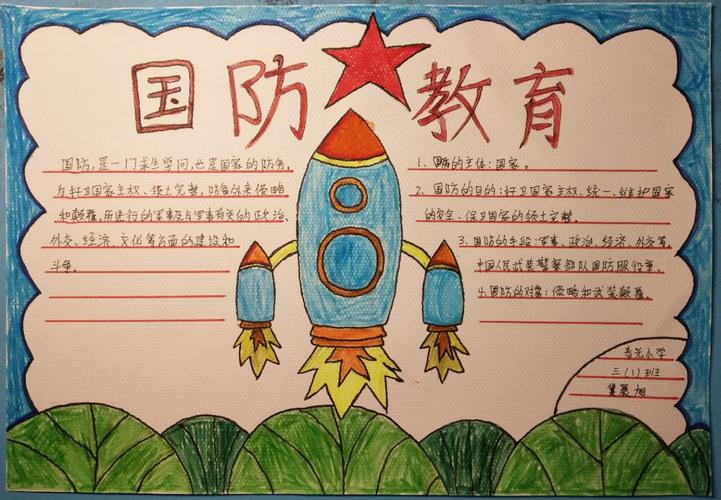 国防教育
国防,是一门求生学问,也是国家的防务,
为捍卫国家主权、领土完整,防备外来侵略
和颠覆,所进行的军事及与军事有关的政治、
外交、经济、文化等方面的建设和
斗争。
1. 国防的主体:国家。
2. 国防的目的:捍卫国家主权、统一、维护国家
的安全、保卫国家的领土完整。
3. 国防的手段:军事、政治、经济、外交等,
中国人民武装警察部队国防服役章。
4. 国防的对象:侵略和武装颠覆。
小学
三(1)班
晨旭